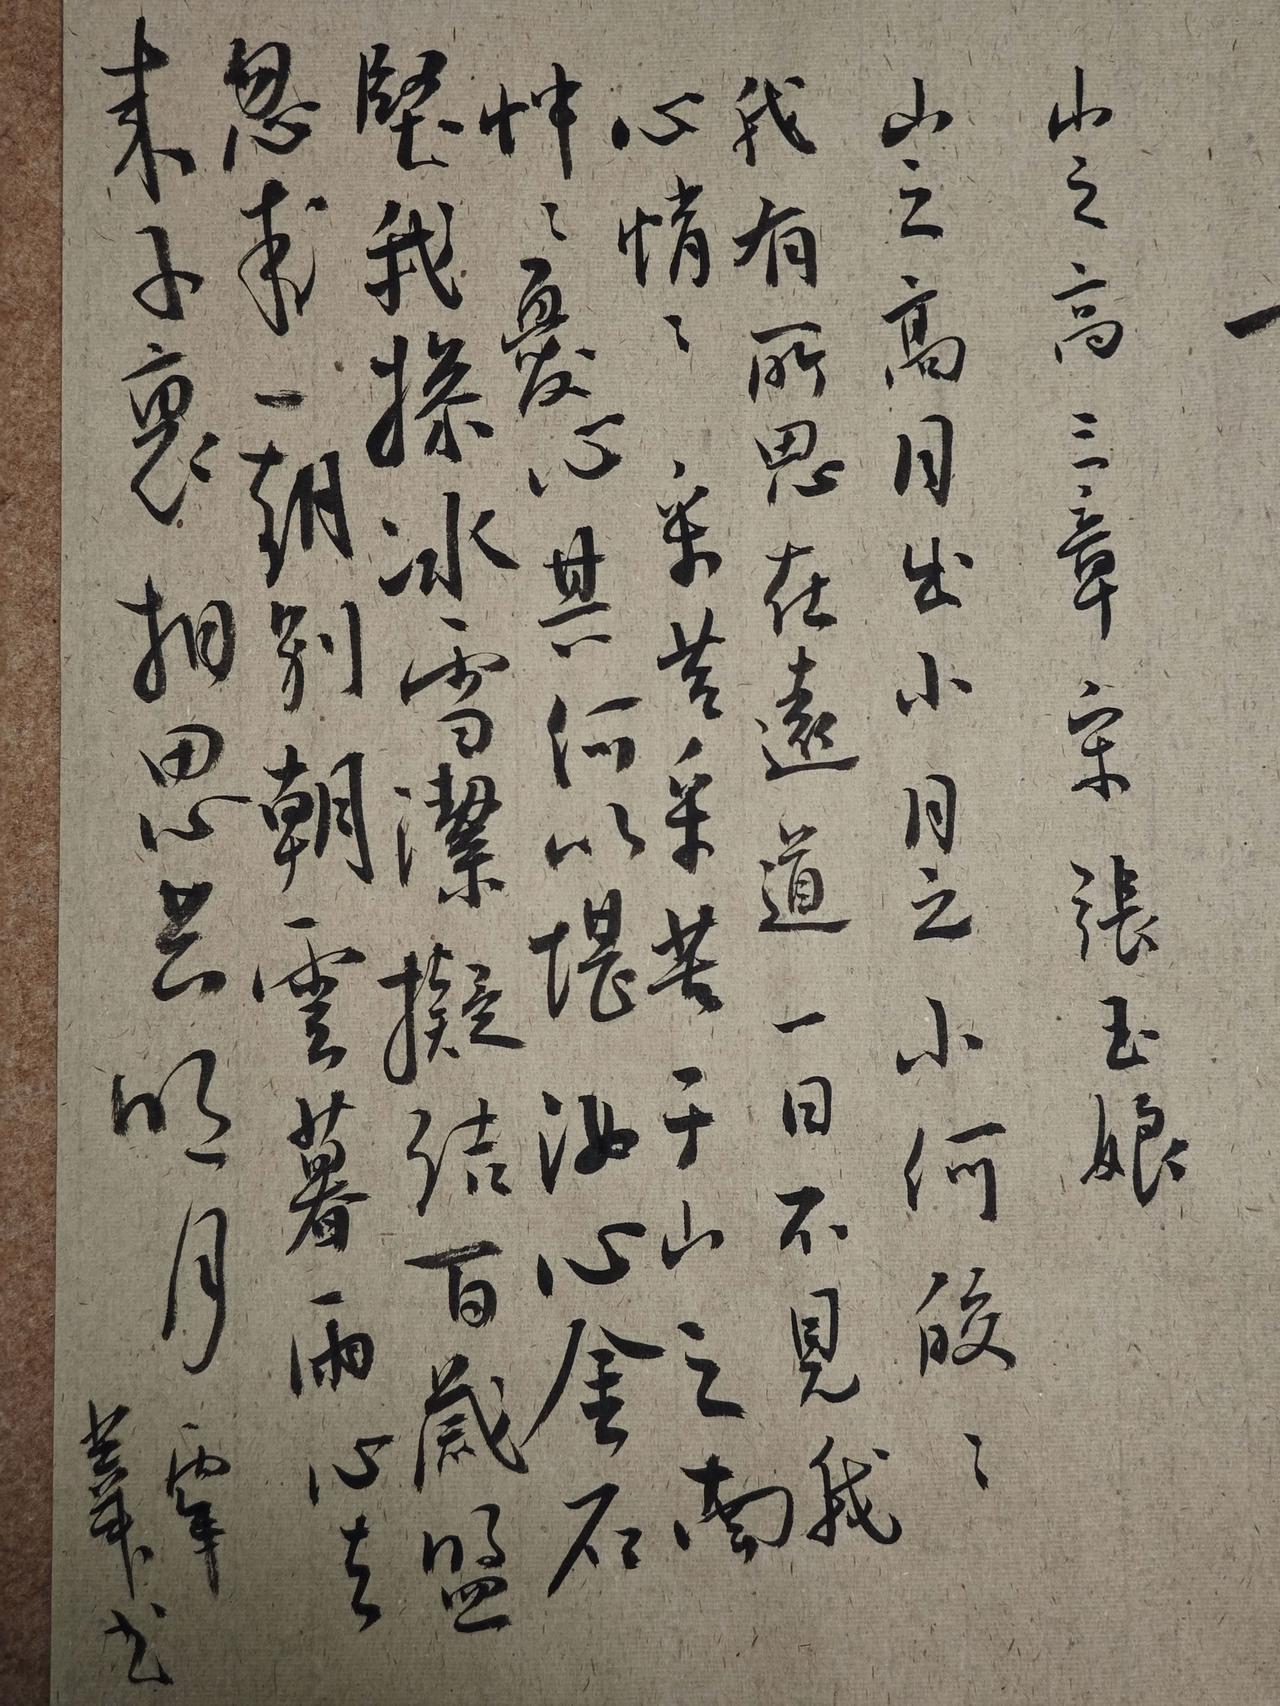 山之高三章 宋 張玉娘
山之高月出小月之小何皎〻
我有所思在遠道一日不見我
心悄〻采苦采苦于山之南
忡〻憂心其何以堪汝心金石
堅我操冰雪潔擬結百歲盟
忽成一朝別朝雲暮雨心去
来千裏相思共明月
书